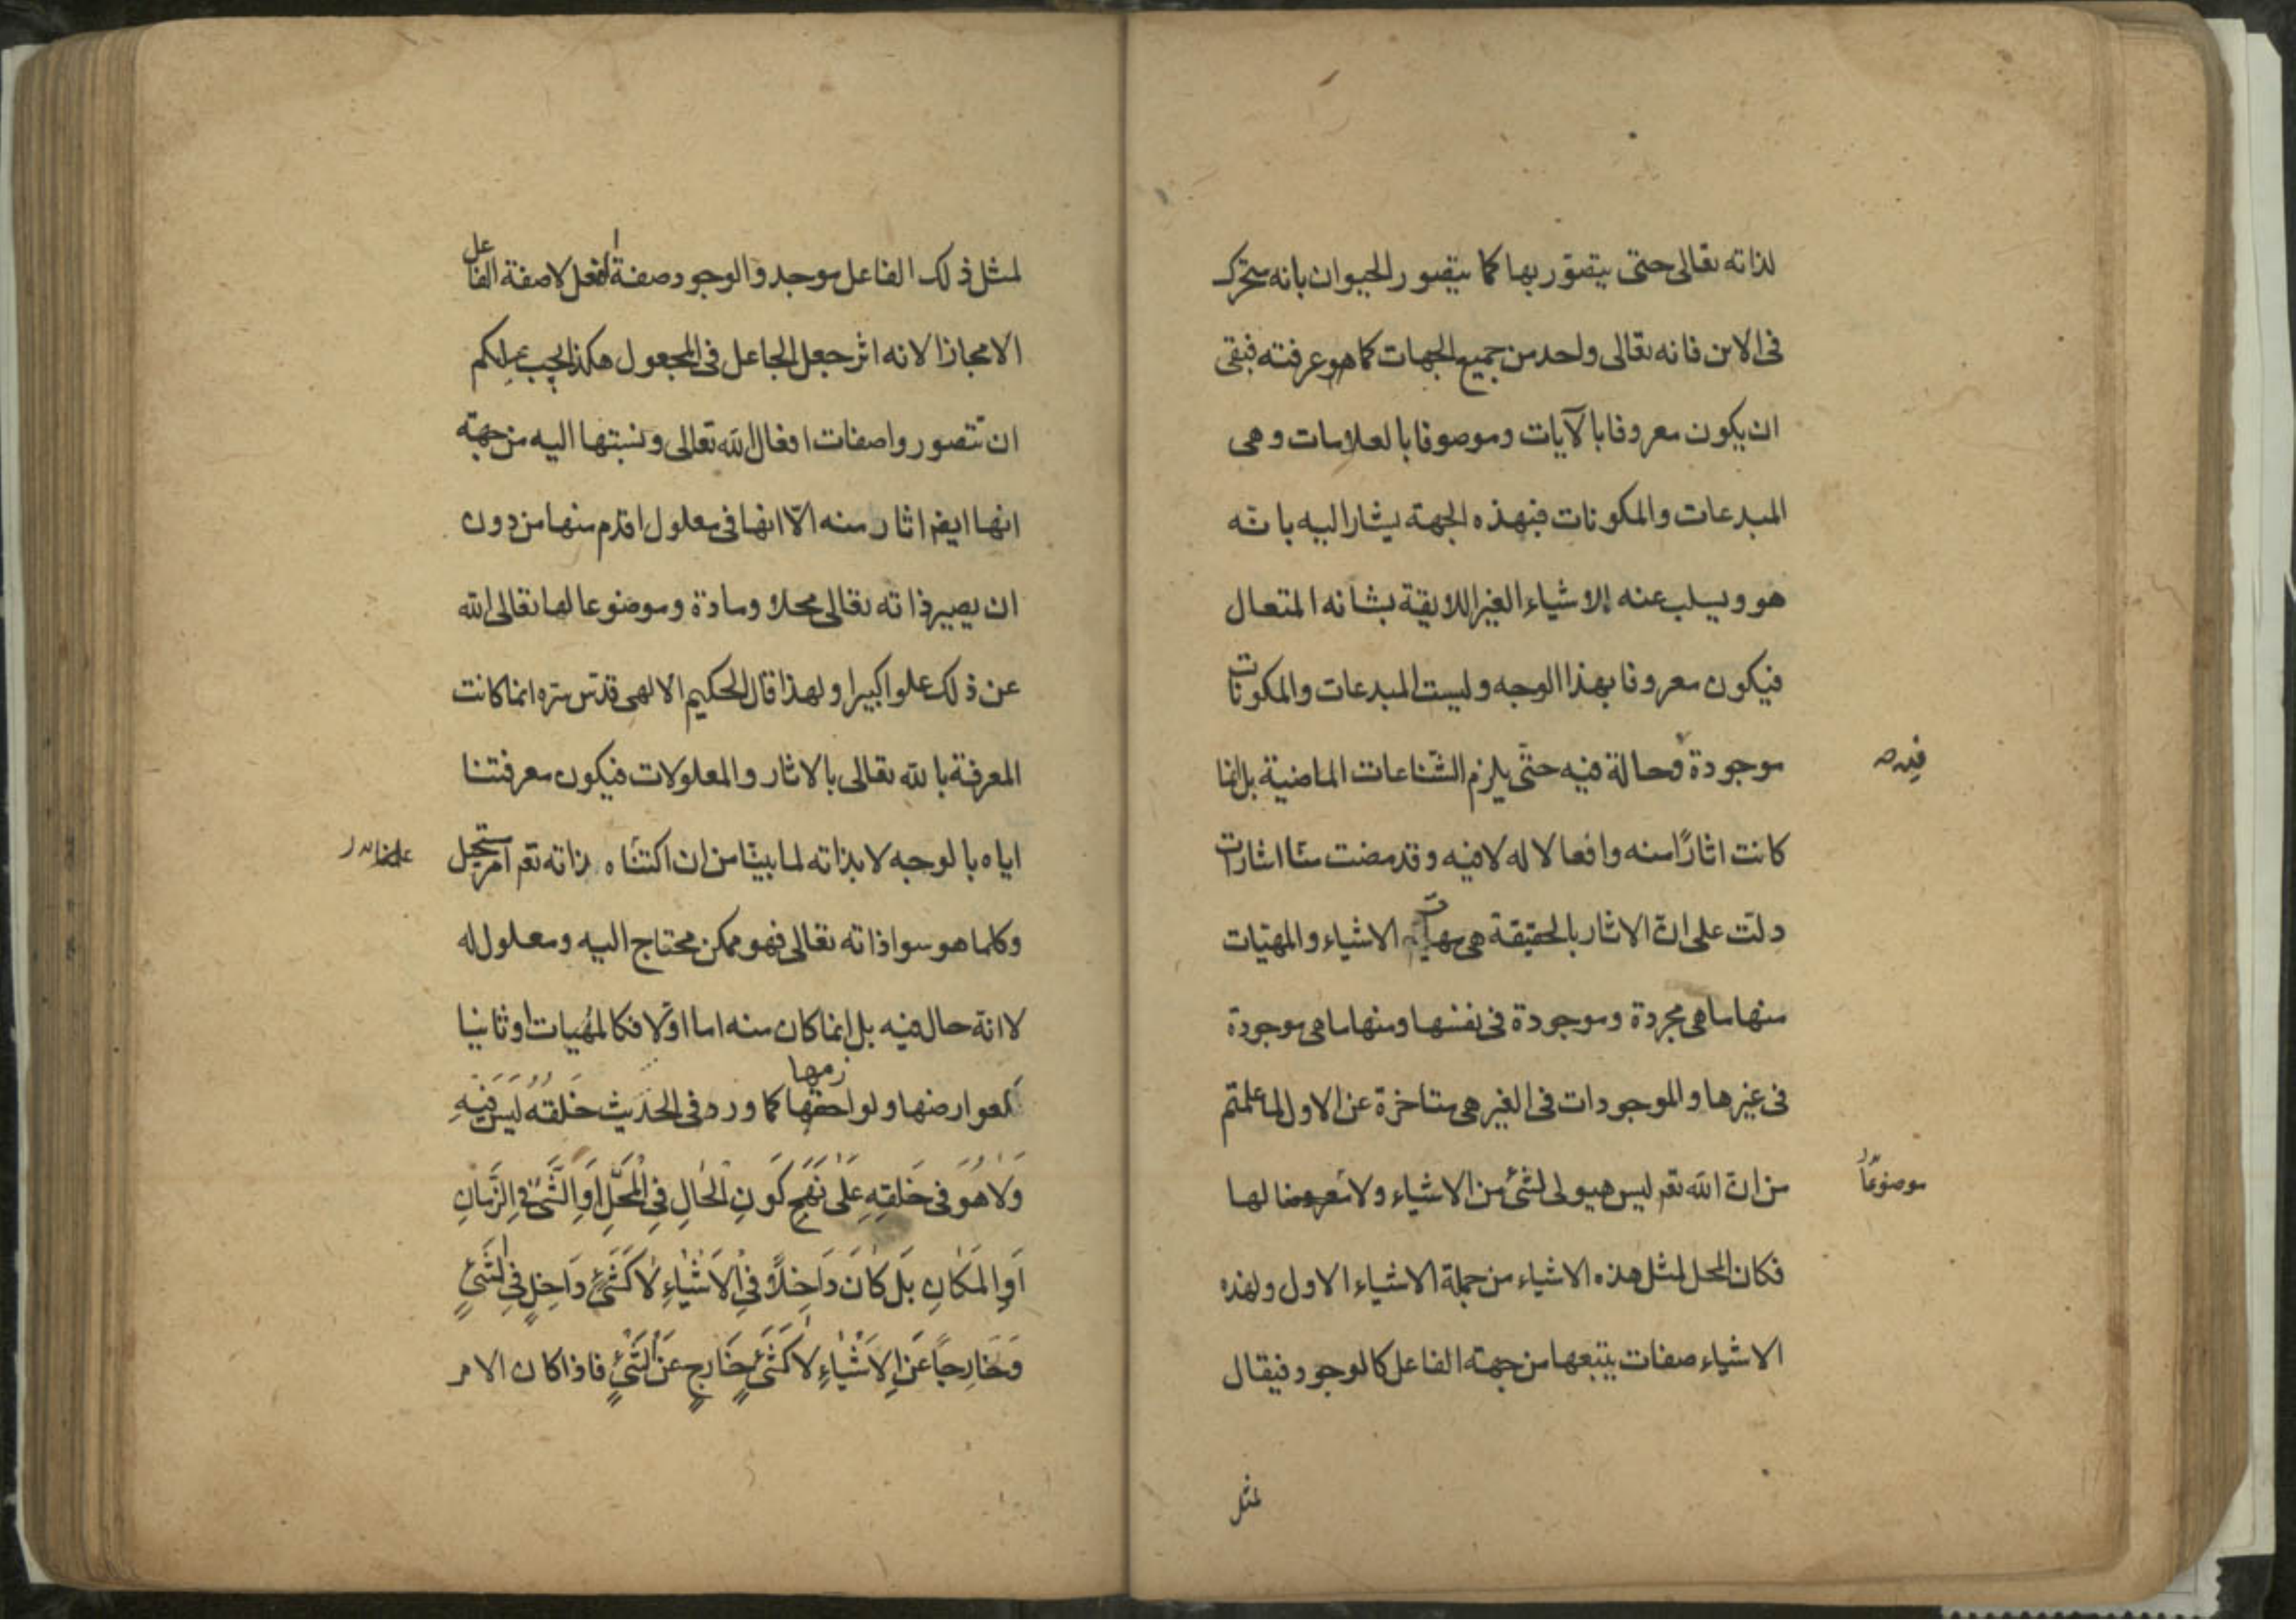 لذاته تعالى حتى يتصوّر بها كما يتصور الحيوان بانه متحرك
فى الاين فانه تعالى واحد من جميع الجهات كما هو عرفته فبقى
ان يكون معروفا بالآيات وموصوفا بالعلامات وهى
المبدعات والمكونات فبهذه الجهة يشار اليه بانّه
هو ويسلب عنه الاشياء الغير اللايقة بشانه المتعال
فيكون معروفا بهذا الوجه وليست المبدعات والمكونات
موجودة وحالة فيه حتّى يلزم الشناعات الماضية بل انها
فيه
كانت اثارًا منه وافعالا له لا فيه وقد مضت منّا اشارات
دلت على انّ الاثار بالحقيقة هى الاشياء والمهيّات
منها ما هى مجردة وموجودة فى نفسها ومنها ما هى موجودة
فى غيرها والموجودات فى الغير هى متاخرة عن الاول لما علمتم
من انّ الله تعم ليس هيولى لشئ من الاشياء ولا معروضا لها
موضوعًا
فكان المحل لمثل هذه الاشياء من جملة الاشياء الاول ولهذه
الاشياء صفات يتبعها من جهة الفاعل كالوجود فيقال
لمثل
لمثل ذلك الفاعل موجد والوجود صفة الفعل لا صفة الفاعل
الا مجازا لانه اثر جعل الجاعل فى المجعول هكذا يجب عليكم
ان تتصوروا صفات افعال الله تعالى ونسبتها اليه من جهة
انها ايضا اثار منه الّا انها فى معلول اقدم منها من دون
ان يصير ذاته تعالى محلا ومادة وموضوعا لها تعالى الله
عن ذلك علوا كبيرا ولهذا قال الحكيم الالهى قدّس سرّه انما كانت
المعرفة بالله تعالى بالاثار والمعلولات فيكون معرفتنا
اياه بالوجه لا بذاته لما بينّا من ان اكتناه ذاته تعم امر مستحيل
وكلما هو سوا ذاته تعالى فهو ممكن محتاج اليه ومعلول له
لا انة حال فيه بل انما كان منه اما اوّلا فكالمهيات او ثانيا
كعوارضها ولوازمها كما ورد فى الحديث خَلقهُ ليسَ فيهِ
وَلَا هُوَ فى خَلقِهِ عَلىٰ نَهجِ كَونِ الْحَالِ فِى الْمَحَلِّ اَوِ الشَّئ فِى الزَّمانِ
اَوِ المَكَانِ بَل كَانَ دَاخِلًا فىِ الْاَشْيَاءِ لَا كَشَئٍ دَاخِلٍ فِى الشَئٍ
وَخَارِجًا عَنِ الاَشْيَاءِ لَا كَشَئٍ خَارِجٍ عَنْ الشَئٍ فاذا كان الامر